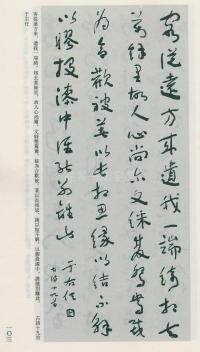 客從遠方來遺我一端綺相去
萬餘里故人心尚尔文綵雙鴛鴦裁
為合歡被著以長相思緣以結不解
以膠投漆中誰能別離此
古詩十九首
于右任
客從遠方來，遺我一端綺。相去萬餘里，故人心尚爾。文綵雙鴛鴦，裁為合歡被。著以長相思，緣以結不解。以膠投漆中，誰能別離此。 古詩十九首
于右任
一〇三